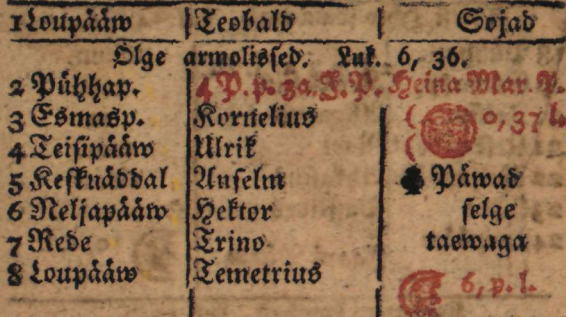 1 Loupääw Teobald Sojad
Olge armolissed. Luk. 6, 36.
2 Pühhap. 4 P. p. 3a. J. P. Heina Mar. P.
3 Esmasp. Kornelius 0, 37 l.
4 Teisipääw Ulrik
5 Kesknäddal Anselm Päwad
6 Neljapääw Hektor selge
7 Rede Trino taewaga
8 Loupääw Temetrius
6, p. l.